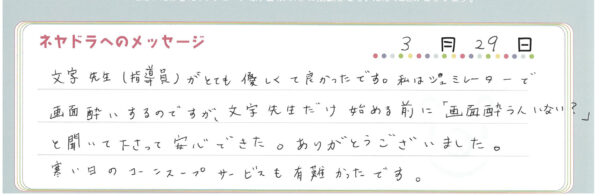 ネヤドラへのメッセージ
3月29日
文字先生(指導員)がとても優しくて良かったです。私はシュミレーターで
画面酔いするのですが、文字先生だけ始める前に「画面酔う人いない?」
と聞いて下さって安心できた。ありがとうございました。
寒い日のコーンスープサービスも有難かったです。